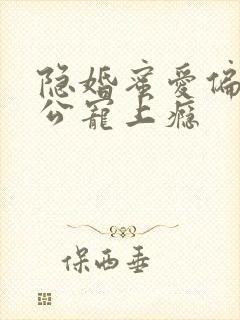 隐婚蜜爱偏
公宠上瘾
保西垂